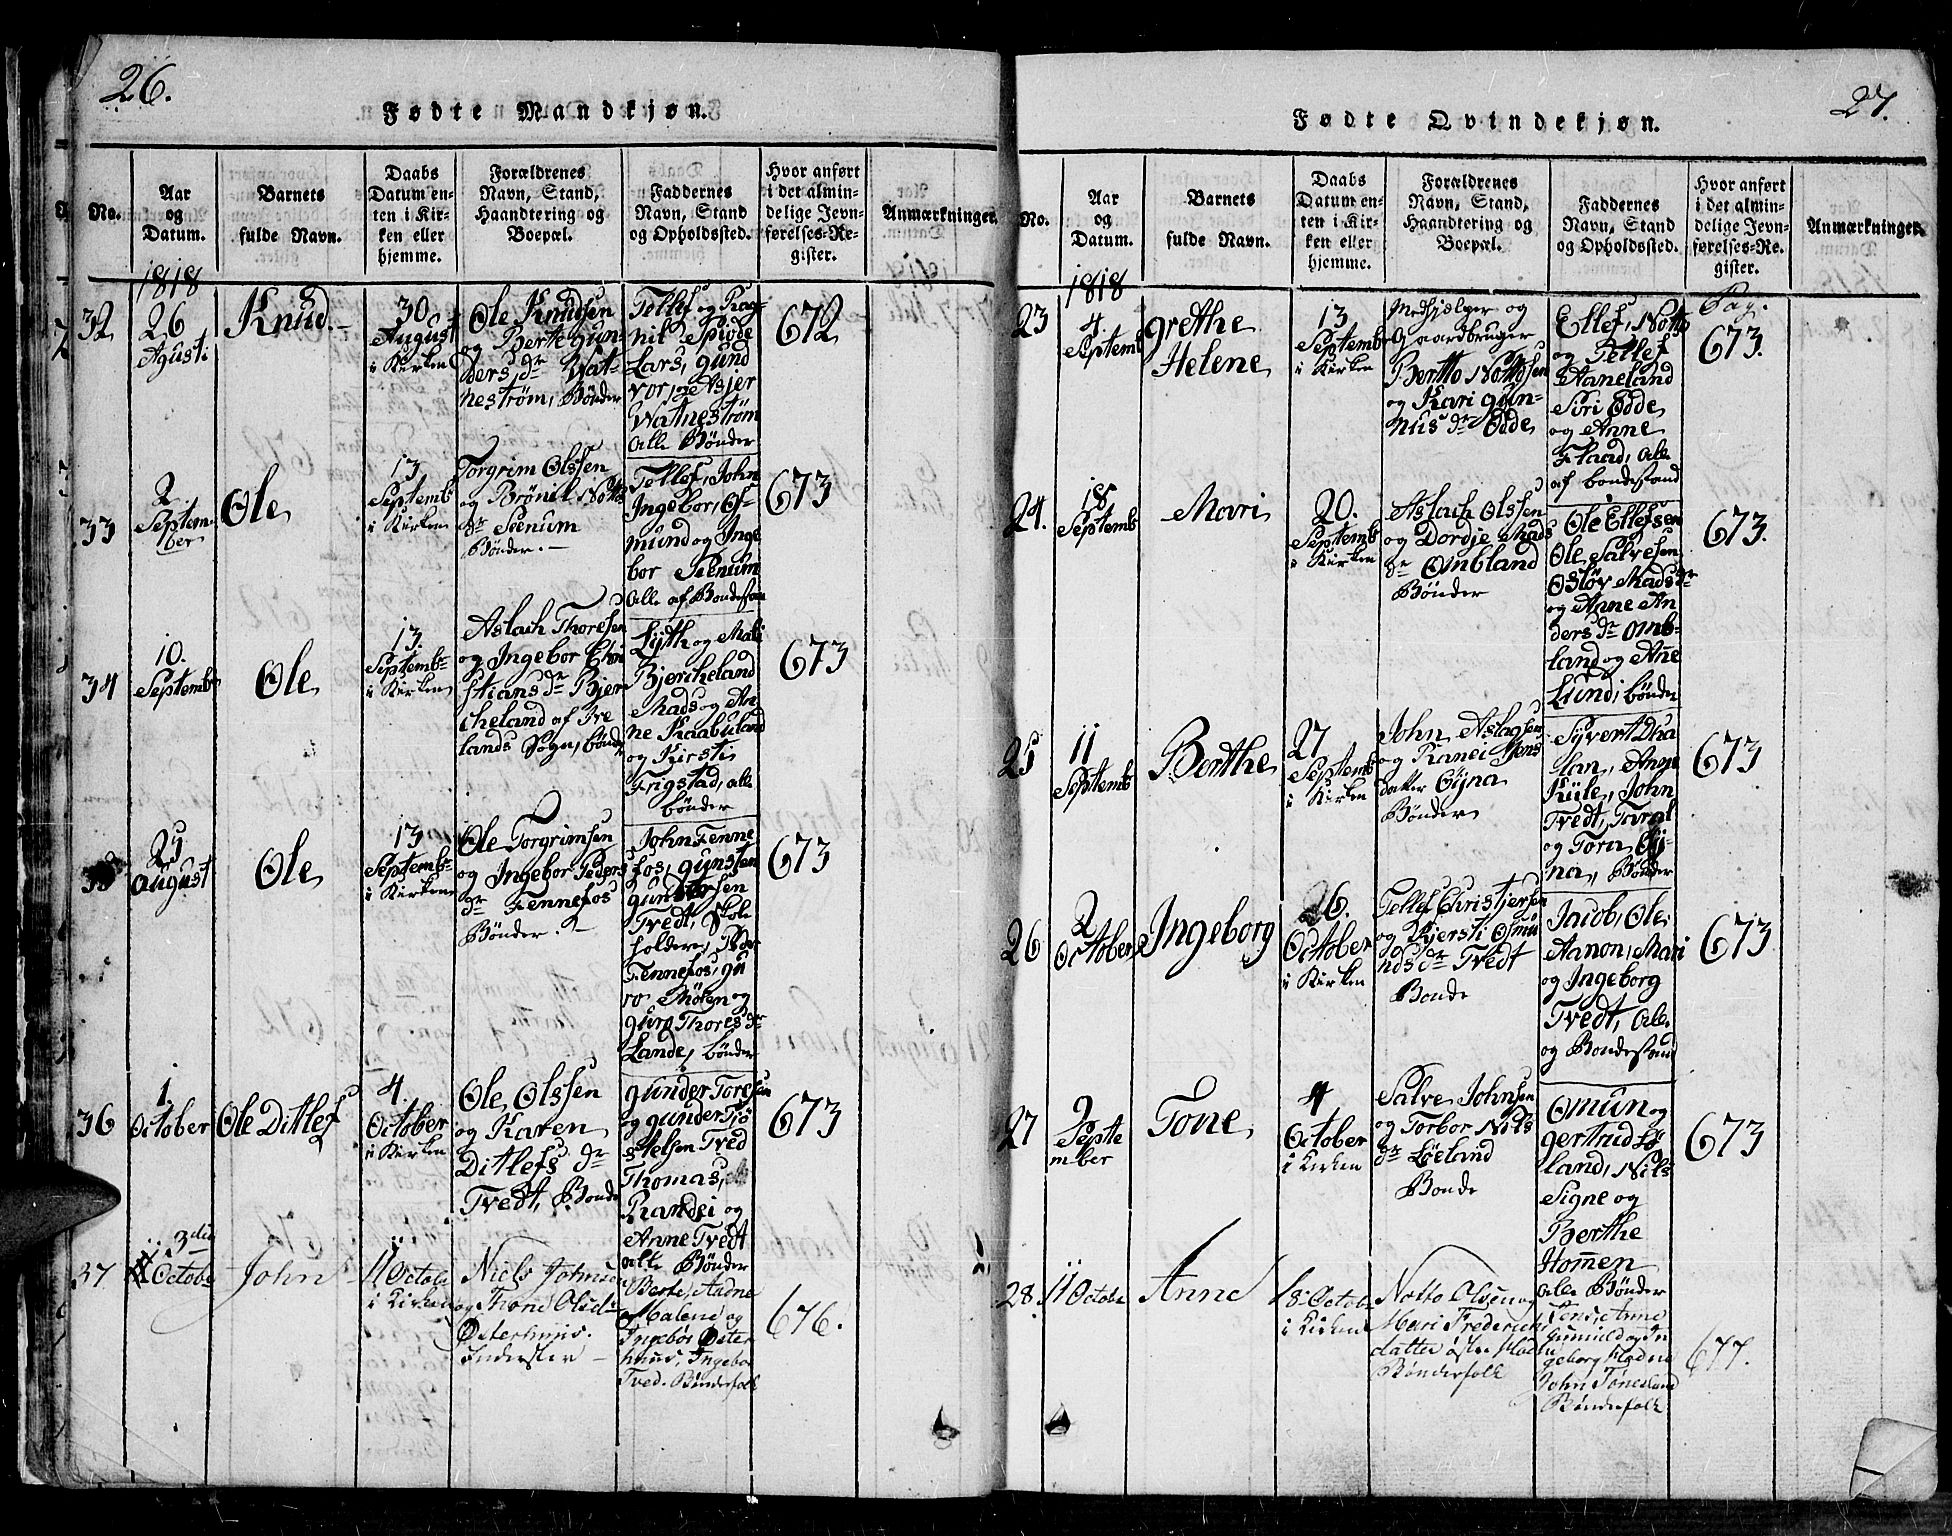 26.
Fødte Mandkjøn.
No.
Aar
og
Datum.
Barnets
fulde Navn.
Daabs
Datum en-
ten i Kir-
ken eller
hjemme.
Forældrenes
Navn, Stand,
Haandtering og
Boepæl.
Faddernes
Navn, Stand
og Opholdssted.
Hvor anført
i det almin-
delige Jevn-
førelses-Re-
gister.
Anmærkninger.
1818
32
26
Agusti
Knud.
30
August
i Kirken
Ole Knudsen
og Berte Gun-
ders dr Wat-
nestrøm, Bønder
Tellef og Rag-
nil Spiøde
Lars, gund
vor, og Asjer
Watnestrøm
alle Bønder
672
33
2
Septem-
ber
Ole
13
Septemb
i Kirken
Torgrim Olssen
og Brønil Notto
dr Seenum
Bønder.
Tellef, John
Ingebor, Os-
mund og Inge
bor Seenum
alle af Bondestan
673
34
10.
Septemb
Ole
13.
Septembr
i Kirken
Aslach Thoresen
og Ingebor Chri
stians dr Bjer
cheland af Ive
lands Sogn, bønder
Lyth og Mali
Bjercheland
Mads og An-
ne Kaabuland
og Kirsti
Frigstad, alle
bønder
673
35
25
August
Ole
13
Septembr
i Kirken
Ole Torgrimsen
og Ingebor Peders
dr Fennefos
Bønder.
John Fenne
fos, gunsten
gundersen
Tvedt, Skole
holder, Tor
Fennefos, gu
ro Moen og
guro Thores dr
Lande, bønder
673
36
1.
October
Ole Ditlef
4.
October
i Kirken
Ole Olssen
og Karen
Ditlefs dr
Tvedt, Bonde
gunder Toresen
og gunder Tos
stelsen Tved
Thomas,
Randei og
Anne Tvedt
alle Bønder
673
37
3die
Octobr
John
11 Octobr
i Kirken
Niels Johnsen
og Thone Olsdr
Osterhuus.
Inderster
Berte, Aadne
Malene og
Ingebor Oster
huus, Ingebor
Tved. Bønderfolk
676.
27.
Fødte Qvindekjøn.
No.
Aar
og
Datum.
Barnets
fulde Navn.
Daabs
Datum en-
ten i Kir-
ken eller
hjemme.
Forældrenes
Navn, Stand,
Haandtering og
Boepæl.
Faddernes
Navn, Stand
og Opholdssted.
Hvor anført
i det almin-
delige Jevn-
førelses-Re-
gister.
Anmærkninger.
1818
Pag.
23
4.
Septemb
Grethe
Helene
13
Septemb
i Kirken
Medhjælper og
Gaardbruger
Bertto Nottosen
og Kari gun-
nus dr Odde
Ellef, Notto
og Tellef
Aaneland
Siri Odde
og Anne
Flaad, alle
af bondestand
673.
24.
18
Septemb
Mari
20.
Septemb
i Kirken
Aslach Olssen
og Dordje Mads
dr Ombland
Bønder
Ole Ellefsen
Ole Salvesen
Osløv Mads dr
og Anne An
ders dr Omb-
land og Ane
Lund, bønder
673.
25
11
Septemb
Berthe
27
Septemb
i Kirken
John Aslagsen
og Ranei Jens
datter Uijna
Bønder
Syvert Dha
lan, Ange
Kule, John
Tvedt, Torgl
og Torn Uij-
na, Bønder
673
26
2
October
Ingeborg
26.
October
i Kirken
Tellef Christjersen
og Kjersti Osmu
nds dr Tvedt
Bonde
Jacob, Ole,
Aanon, Mari
og Ingeborg
Tvedt, alle
og Bondestand
673
27
9
Septte
mber
Tone
4
October
i Kirken
Salve Johnsen
og Torbor Nils
dr Løeland
Bonde
Omun og
gertrud Lø
land, Nils
Signe og
Berthe
Hommen
alle Bønder
673
28.
11 Octobr
Anne
18 Octobr
i Kirken
Notto Olsen og
Mari Frederichs
datter
Bønderfolk
Anne
Gunuld og In
geborg
John Tønesland
Bønderfolk
677.